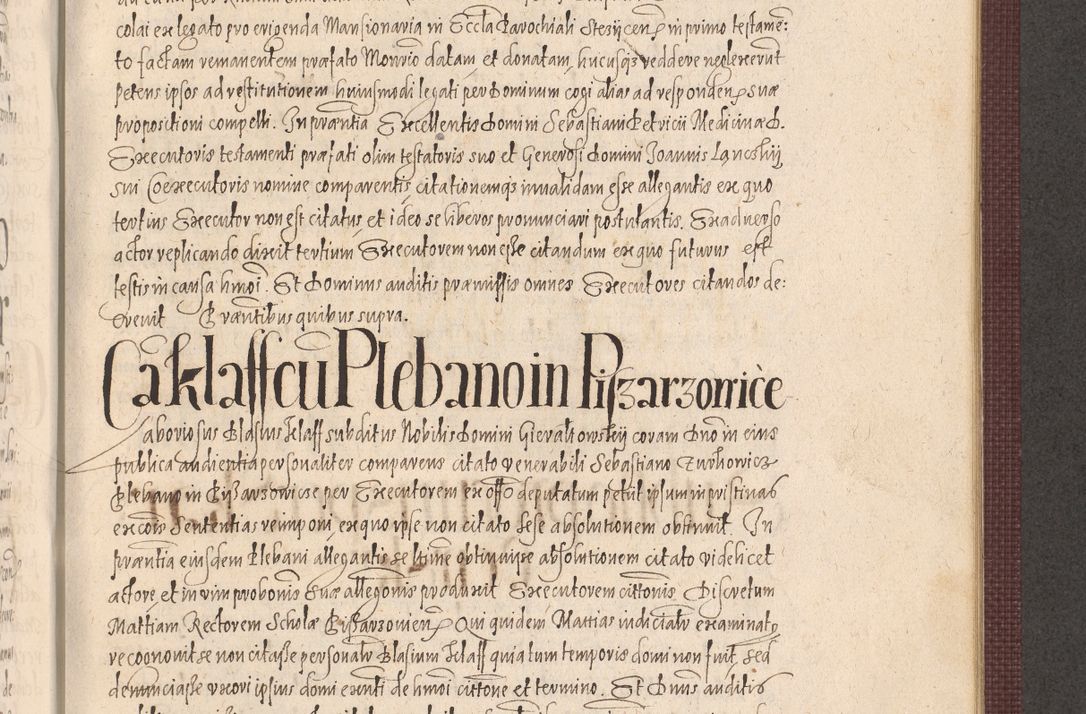 colai ex legato pro erigenda Mansionaria in Eccla Parochiali Stesÿcen in primo testame:
to factam remanentem præfato Monrio datam et donatam hucusqz reddere neglexerunt
Petens ipsos ad restitutionem huiusmodi legati per Dominum cogi alias ad responden suæ
propositioni compelli. In præntia Excellentis Domini Sebastiani Petricii Medicinæ D.
Executoris testamenti præfati olim testatoris suo et Generosi Domini Joannis Lancskij
sui Coexecutoris nomine comparentis citationemqz invalidam esse allegantis ex quo
tertius Executor non est citatus et ideo se liberos pronunciari postulantis. Ex adverso
actor replicando dixit tertium Executorem non esse citandum ex quo futurus est
testis in causa hmoi. Et Dominus auditis præmissis omnes Executores citandos de:
crevit Præntibus quibus supra.
Ca Klassicū Plebano in Piszarzowice
Laboriosus Blasius Klass subditus Nobilis Domini Gieraltowskij coram Dno in eius
publica audientia personaliter comparens citato venerabili Sebastiano
Plebano in Piszarzowicze per Executorem ex offo deputatum petiit ipsum in pristinas
excois Sententias reimponi ex quo ipse non citato sese absolutionem obtinuit. In
præntia eiusdem Plebani allegantis se ltime obtinuisse absolutionem citato videlicet
actore et in vim probonis suæ allegonis produxit Executorem cittonis Discretum
Mattiam Rectorem Scholæ Piszarzovien Qui quidem Mattias iudicialr examinatq
recognovit se non citasse personalr Blasium Klass quia tum temporis domi non fuit, sed
denunciasse uxori ipsius domi exnti de hmoi cittone et termino. Et Dnus auditis